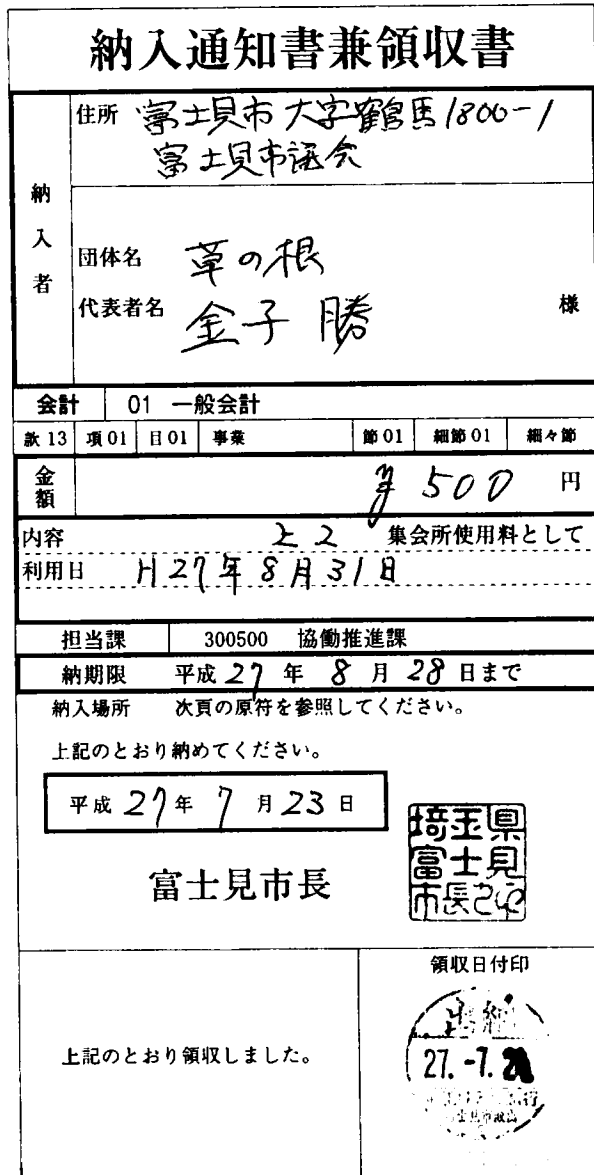 納入通知書兼領収書
納入者
住所 富士見市大字鶴馬1800-1
富士見市議会
団体名 草の根
代表者名 金子 勝 様
会計 01 一般会計
款 13 項 01 目 01 事業 節 01 細節 01 細々節
金額 ¥500 円
内容 集会所使用料として
利用日 H27年8月31日
担当課 300500 協働推進課
納期限 平成27年8月28日まで
納入場所 次頁の原符を参照してください。
上記のとおり納めてください。
平成27年7月23日
富士見市長
埼玉県
富士見
市長之印
領収日付印
上記のとおり領収しました。
出納
27.-7.